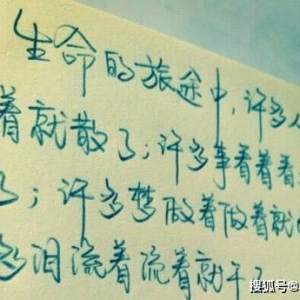 生命的旅途中,许多
着就散了;许多事看着看
了;许多梦做着做着就
多泪流着流着就干了
搜狐号@